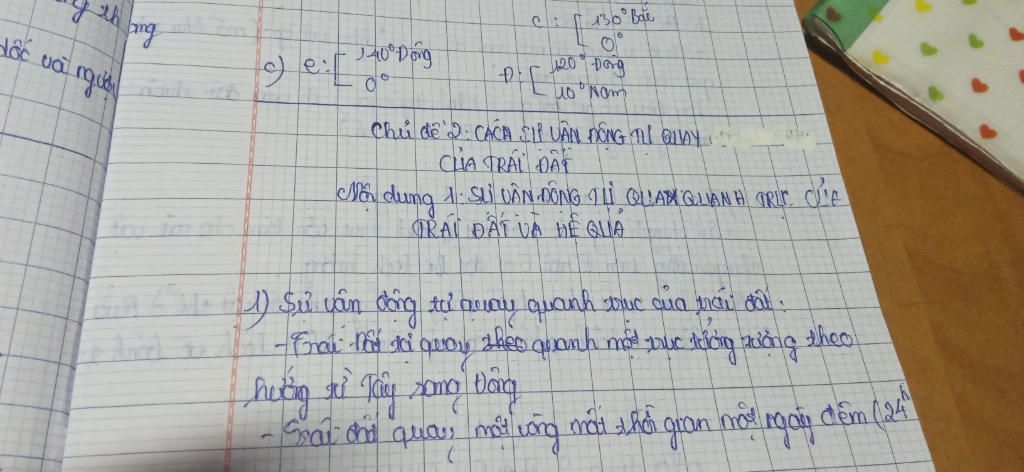 ng
dốc vài người
C: [ 130° Bắc
0°
c) e: [ 140° Đông
0°
D: [ 120° Đông
10° Nam
Chủ đề 2: CÁCH SỰ VẬN ĐỘNG TỰ QUAY
CỦA TRÁI ĐẤT
Nội dung 1: SỰ VẬN ĐỘNG TỰ QUAY QUANH TRỤC CỦA
TRÁI ĐẤT VÀ HỆ QUẢ
1) Sự vận động tự quay quanh trục của trái đất:
- Trái đất tự quay theo quanh một trục tưởng tượng theo
hướng từ Tây sang Đông
- Trái đất quay một vòng mất thời gian một ngày đêm (24h